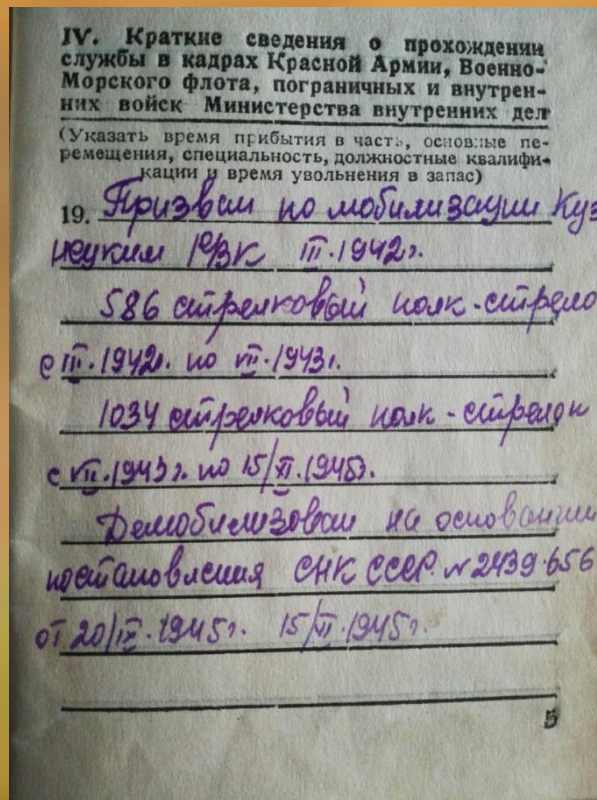 IV. Краткие сведения о прохождении
службы в кадрах Красной Армии, Военно-
Морского флота, пограничных и внутрен-
них войск Министерства внутренних дел
(Указать время прибытия в часть, основные пе-
ремещения, специальность, должностные квалифи-
кации и время увольнения в запас)
19. Призван по мобилизации Куз
нецким РВК III.1942г.
586 стрелковый полк-стрело
с III.1942г. по VII.1943г.
1034 стрелковый полк-стрелок
с VII.1943г. по 15/XI.1945г.
Демобилизован на основании
постановления СНК СССР. № 2439.656
от 20/IX.1945г. 15/VI.1945г.
5